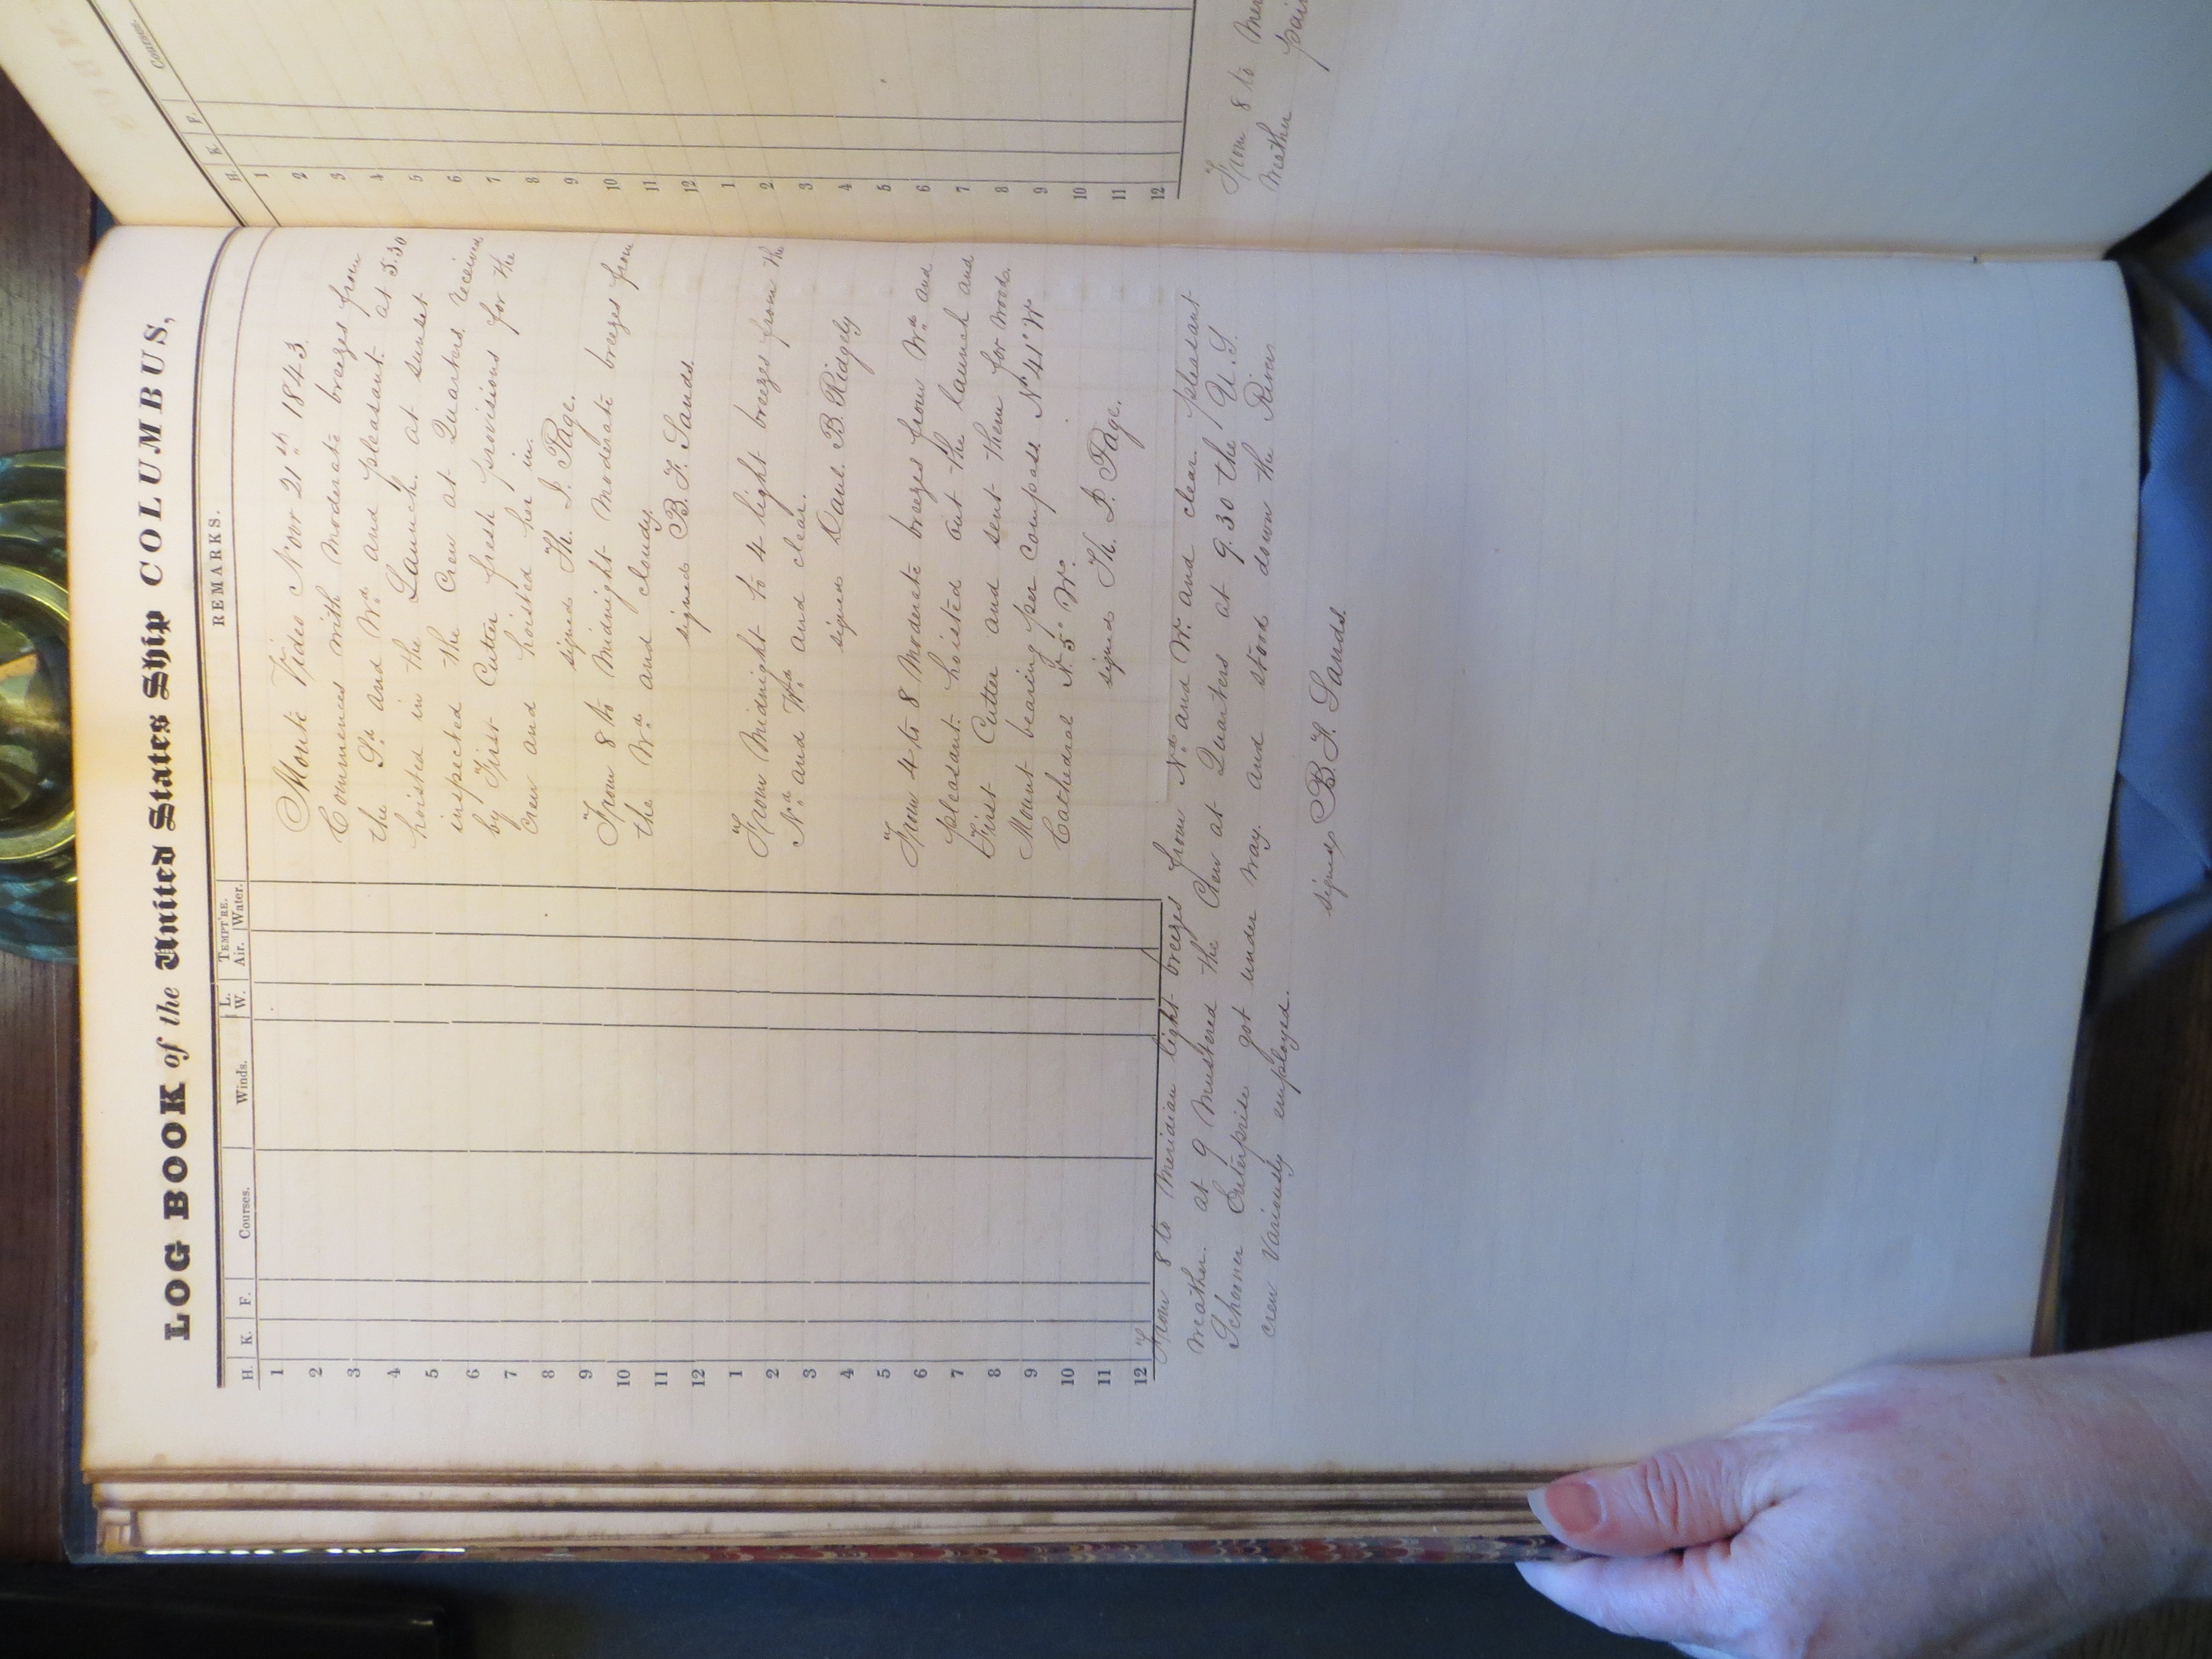 LOG BOOK of the United States Ship COLUMBUS,
H. K. F. Courses. Winds. L. W. TEMPT'RE. Air. Water. REMARKS.
1
2
3
4
5
6
7
8
9
10
11
12
1
2
3
4
5
6
7
8
9
10
11
12
Monte Video Novr 21st 1843
Commences with moderate breezes from
the Sd and Wd and pleasant. at 5.30
hoisted in the Launch. at sunset
inspected the Crew at Quarters. received
by First Cutter fresh provisions for the
Crew and hoisted her in.
signed Th. J. Page.
From 8 to Midnight Moderate breezes from
the Wd and cloudy.
signed B. F. Sands.
From Midnight to 4 light breezes from the
Nd and Wd and clear.
signed Danl. B. Ridgely
From 4 to 8 Moderate breezes from Wd and
pleasant. hoisted out the launch and
First Cutter and sent them for wood.
Mount bearing per Compass N 41° W
Cathedral N. 5° W.
signed Th. J. Page.
From 8 to Meridian light breezes from Nd and Wd and clear pleasant
weather. at 9 Mustered the Crew at Quarters at 9.30 the U.S.
Schooner Enterprise got under way. and stood down the River
crew Variously employed.
signed B. F. Sands.
H. K. F. Courses
1
2
3
4
5
6
7
8
9
10
11
12
1
2
3
4
5
6
7
8
9
10
11
12
From 8 to
Weather